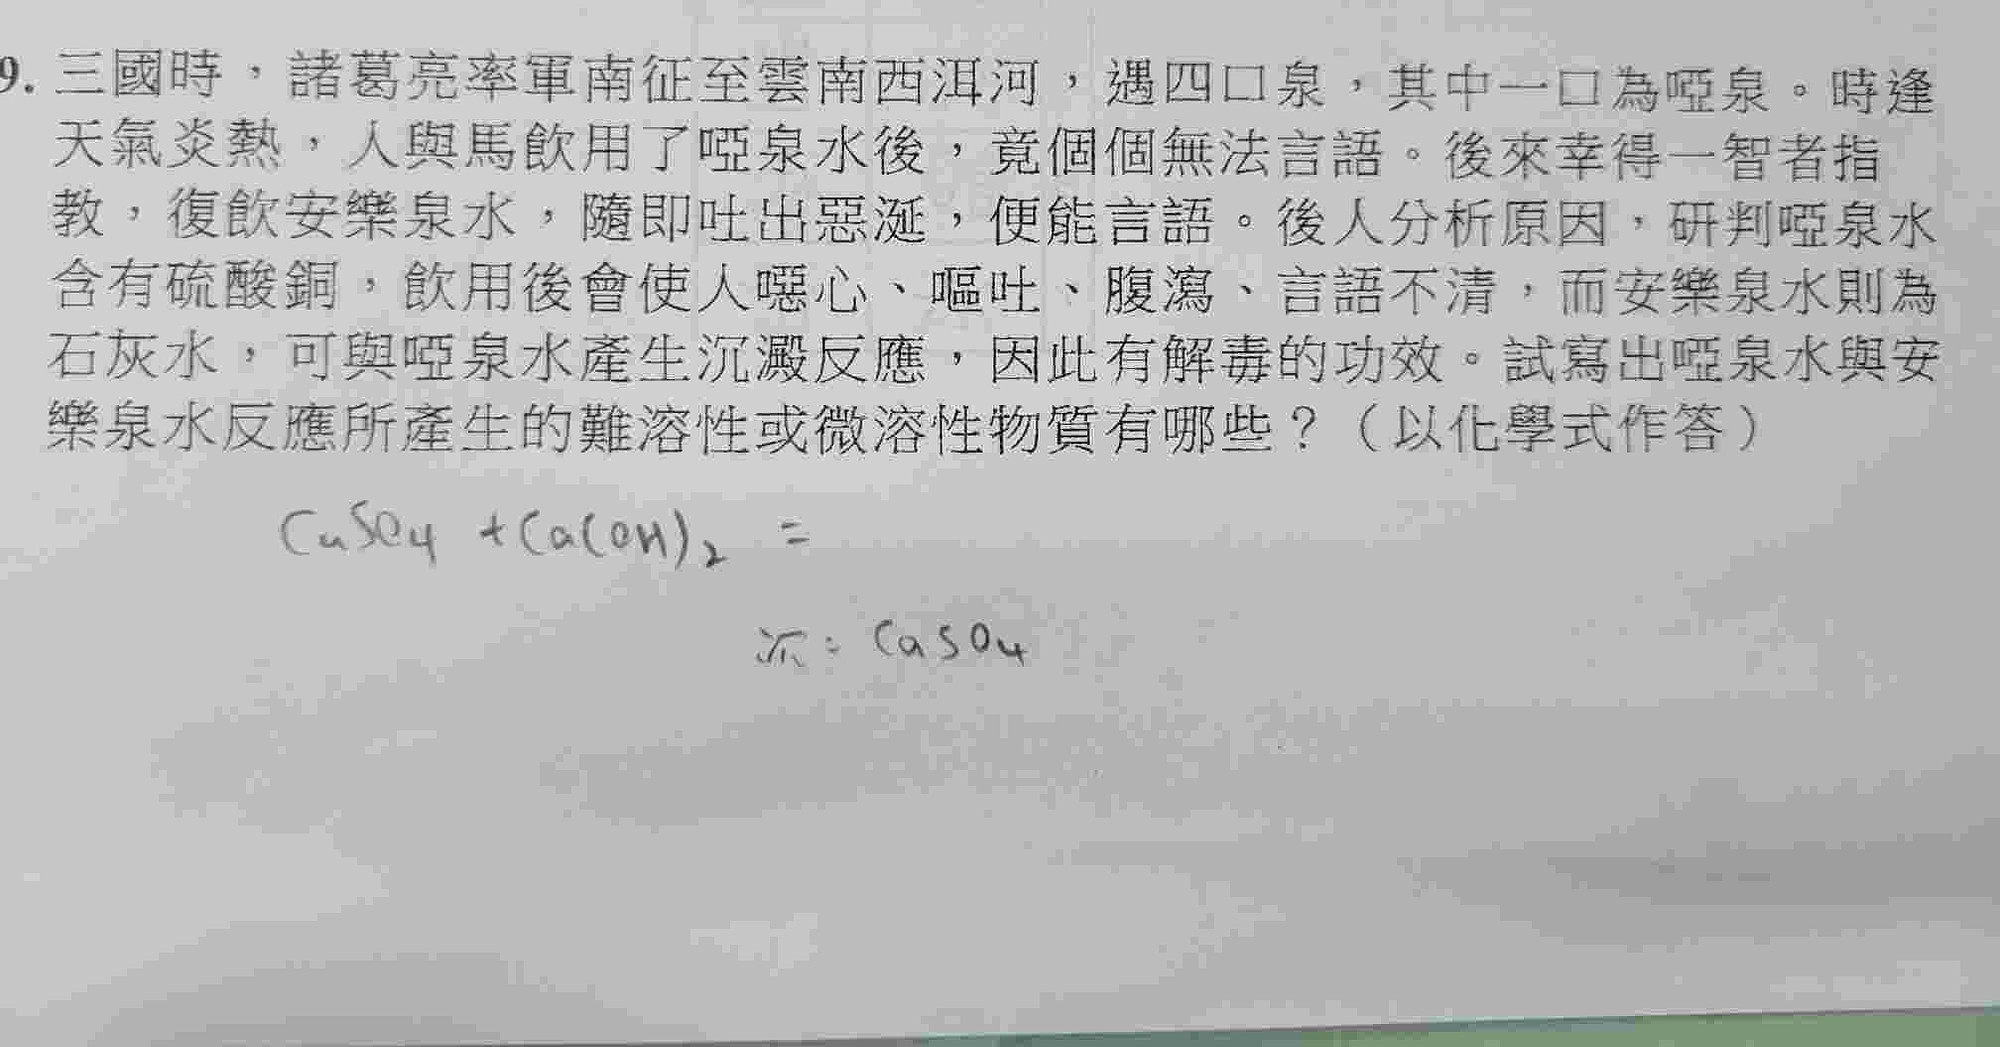 9. 三國時，諸葛亮率軍南征至雲南西洱河，遇四口泉，其中一口為啞泉。時逢
天氣炎熱，人與馬飲用了啞泉水後，竟個個無法言語。後來幸得一智者指
教，復飲安樂泉水，隨即吐出惡涎，便能言語。後人分析原因，研判啞泉水
含有硫酸銅，飲用後會使人噁心、嘔吐、腹瀉、言語不清，而安樂泉水則為
石灰水，可與啞泉水產生沉澱反應，因此有解毒的功效。試寫出啞泉水與安
樂泉水反應所產生的難溶性或微溶性物質有哪些？（以化學式作答）
CuSO4 + Ca(OH)2 =
沉: CaSO4